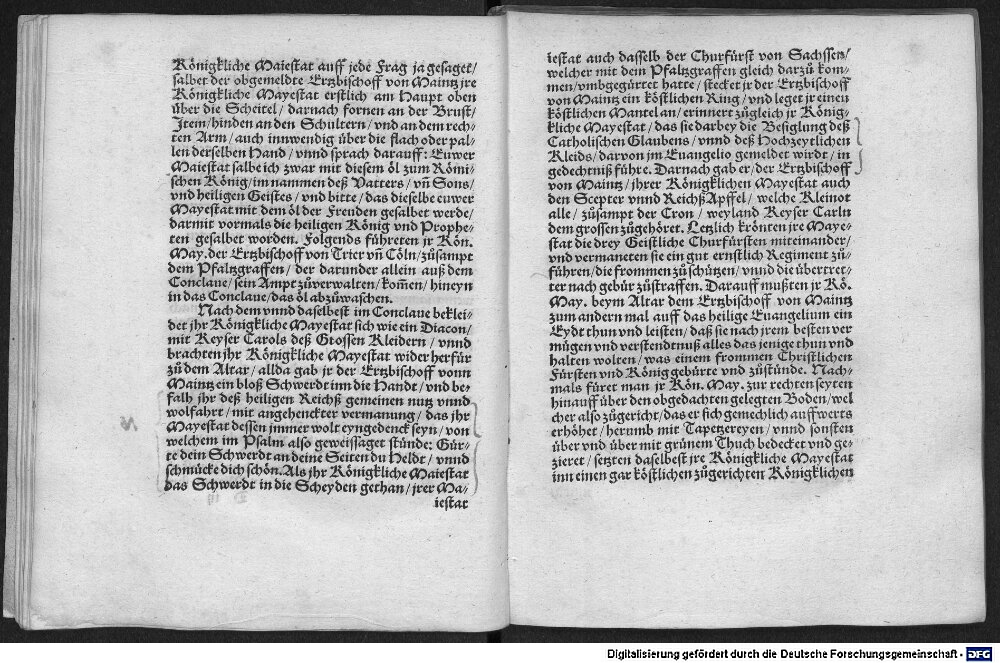 Königkliche Maiestat auff jede Frag ja gesaget/
salbet der obgemeldte Ertzbischoff von Maintz jre
Königkliche Mayestat erstlich am Haupt oben
über die Scheitel/ darnach fornen an der Brust/
Jtem/ hinden an den Schultern/ vnd an dem rech-
ten Arm/ auch innwendig über die flach oder pal-
len derselben Hand/ vnnd sprach darauff: Euwer
Maiestat salbe ich zwar mit diesem öl zum Römi-
schen König/ im nammen deß Vatters/ vn̄ Sons/
vnd heiligen Geistes/ vnd bitte/ das dieselbe euwer
Mayestat mit dem öl der Freuden gesalbet werde/
darmit vormals die heiligen König vnd Prophe-
ten gesalbet worden. Folgends führeten jr Kön.
May. der Ertzbischoff von Trier vn̄ Cöln/ zůsampt
dem Pfaltzgraffen/ der darunder allein auß dem
Conclaue/ sein Ampt zůverwalten/ kom̄en/ hineyn
in das Conclaue/ das öl abzůwaschen.
Nach dem vnnd daselbest im Conclaue beklei-
det jhr Königkliche Mayestat sich wie ein Diacon/
mit Keyser Carols deß Grossen Kleidern/ vnnd
brachten jhr Königkliche Mayestat wider herfür
zů dem Altar/ allda gab jr der Ertzbischoff vonn
Maintz ein bloß Schwerdt inn die Handt/ vnd be-
falh jhr deß heiligen Reichß gemeinen nutz vnnd
wolfahrt/ mit angehenckter vermanung/ das jhr
Mayestat dessen jmmer wolt eyngedenck seyn/ von
welchem im Psalm also geweissaget stünde: Gür-
te dein Schwerdt an deine Seiten du Heldt/ vnnd
schmücke dich schön. Als jhr Königkliche Maiestat
das Schwerdt in die Scheyden gethan/ jrer Ma-
iestat
iestat auch dasselb der Churfürst von Sachssen/
welcher mit dem Pfaltzgraffen gleich darzů kom-
men/ vmbgegürtet hatte/ stecket jr der Ertzbischoff
von Maintz ein köstlichen Ring/ vnd leget jr einen
köstlichen Mantel an/ erinnert zůgleich jr König-
kliche Mayestat/ das sie darbey die Besiglung deß
Catholischen Glaubens/ vnnd deß Hochzeytlichen
Kleids/ darvon im Euangelio gemeldet wirdt/ in
gedechtniß führe. Darnach gab er/ der Ertzbischoff
von Maintz/ jhrer Königklichen Mayestat auch
den Scepter vnnd Reichß Apffel/ welche Kleinot
alle/ zůsampt der Cron/ weyland Keyser Carln
dem grossen zůgehöret. Letzlich krönten jre Maye-
stat die drey Geistliche Churfürsten miteinander/
vnd vermaneten sie ein gut ernstlich Regiment zů-
führen/ die frommen zů schützen/ vnnd die übertret-
ter nach gebür zůstraffen. Darauff mußten jr Kö.
May. beym Altar dem Ertzbischoff von Maintz
zum andern mal auff das heilige Euangelium ein
Eydt thun vnd leisten/ daß sie nach jrem besten ver
mügen vnd verstendtnuß alles das jenige thun vnd
halten wolten/ was einem frommen Christlichen
Fürsten vnd König gebürte vnd zůstünde. Nach-
mals füret man jr Kön. May. zur rechten seyten
hinauff über den obgedachten gelegten Boden/ wel
cher also zůgericht/ das er sich gemechlich auffwerts
erhöhet/ herumb mit Tapetzereyen/ vnnd sonsten
über vnd über mit grünem Thuch bedecket vnd ge-
zieret/ setzten daselbest jre Königkliche Mayestat
inn einen gar köstlichen zůgerichten Königklichen
Digitalisierung gefördert durch die Deutsche Forschungsgemeinschaft - DFG